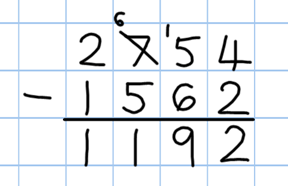 6 1
2 7 5 4
- 1 5 6 2
1 1 9 2